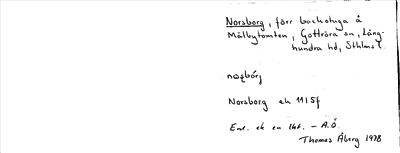 Norsborg, förr backstuga å
Mälbytomten, Gottröra sn, Lång-
hundra hd, Sthlms l.
Norsborg ek 11I5f
Enl. ek en lht. – A.Ö.
Thomas Åberg 1978